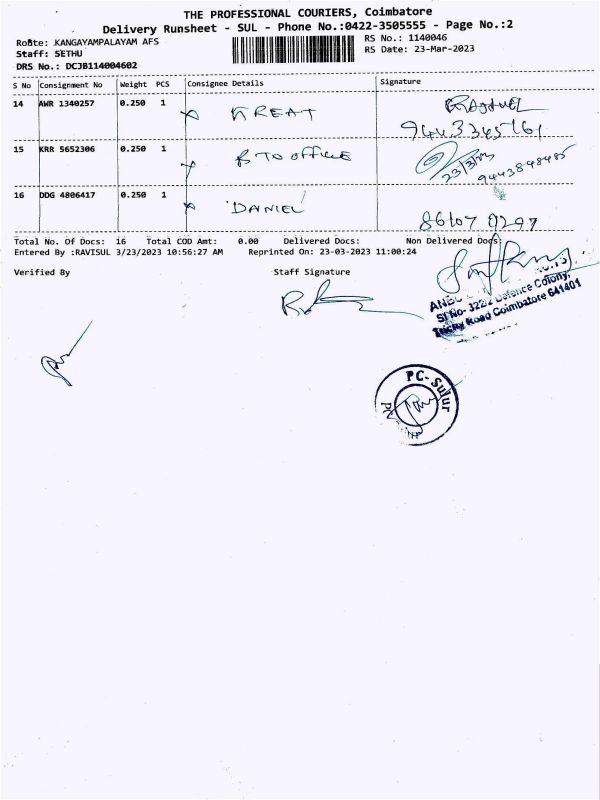 THE PROFESSIONAL COURIERS, Coimbatore
Delivery Runsheet - SUL - Phone No.:0422-3505555 - Page No.:2
Route: KANGAYAMPALAYAM AFS
RS No.: 1140046
Staff: SETHU
RS Date: 23-Mar-2023
DRS No.: DCJB114004602
S No Consignment No Weight PCS Consignee Details Signature
14 AWR 1340257 0.250 1 KREAT
9443345161
15 KRR 5652306 0.250 1 B TO OFFICE
23/3/23 9443848485
16 DDG 4806417 0.250 1 DANIEL
86107 0297
Total No. Of Docs: 16 Total COD Amt: 0.00 Delivered Docs: Non Delivered Docs:
Entered By :RAVISUL 3/23/2023 10:56:27 AM Reprinted On: 23-03-2023 11:00:24
Verified By Staff Signature
Sf No- 322/2 Defence Colony,
Trichy Road Coimbatore 641401
PC- Sulur